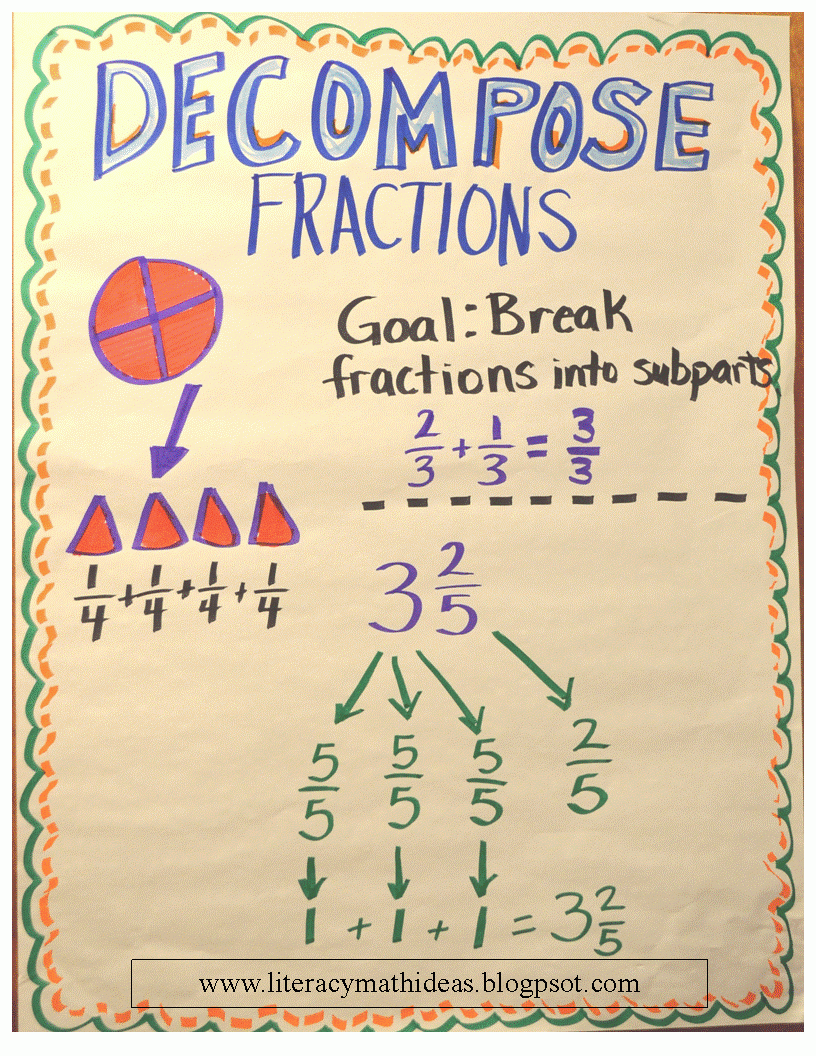 DECOMPOSE
FRACTIONS
Goal: Break
fractions into subparts
2/3 + 1/3 = 3/3
1/4 + 1/4 + 1/4 + 1/4
3 2/5
5/5 5/5 5/5 2/5
1 + 1 + 1 = 3 2/5
www.literacymathideas.blogpsot.com